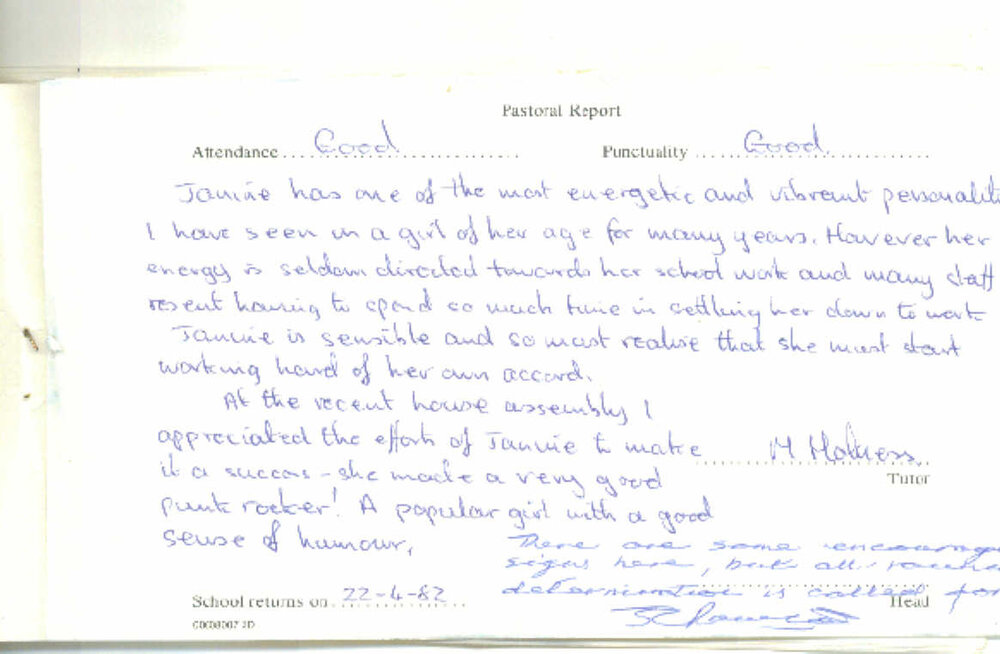 Pastoral Report
Attendance .... Good .... Punctuality .... Good. ....
Janine has one of the most energetic and vibrant personalit
I have seen in a girl of her age for many years. However her
energy is seldom directed towards her school work and many staff
resent having to spend so much time in settling her down to work
Janine is sensible and so must realise that she must start
working hard of her own accord.
At the recent house assembly I
appreciated the efforts of Janine to make
it a success - she made a very good
punk rocker! A popular girl with a good
sense of humour.
M Holness
Tutor
There are some encourag
signs here, but all
determination is called for
School returns on 22-4-82
Head